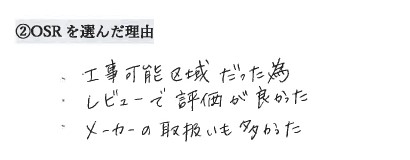 ②OSRを選んだ理由
・工事可能区域だった為
・レビューで評価が良かった
・メーカーの取扱いも多かった